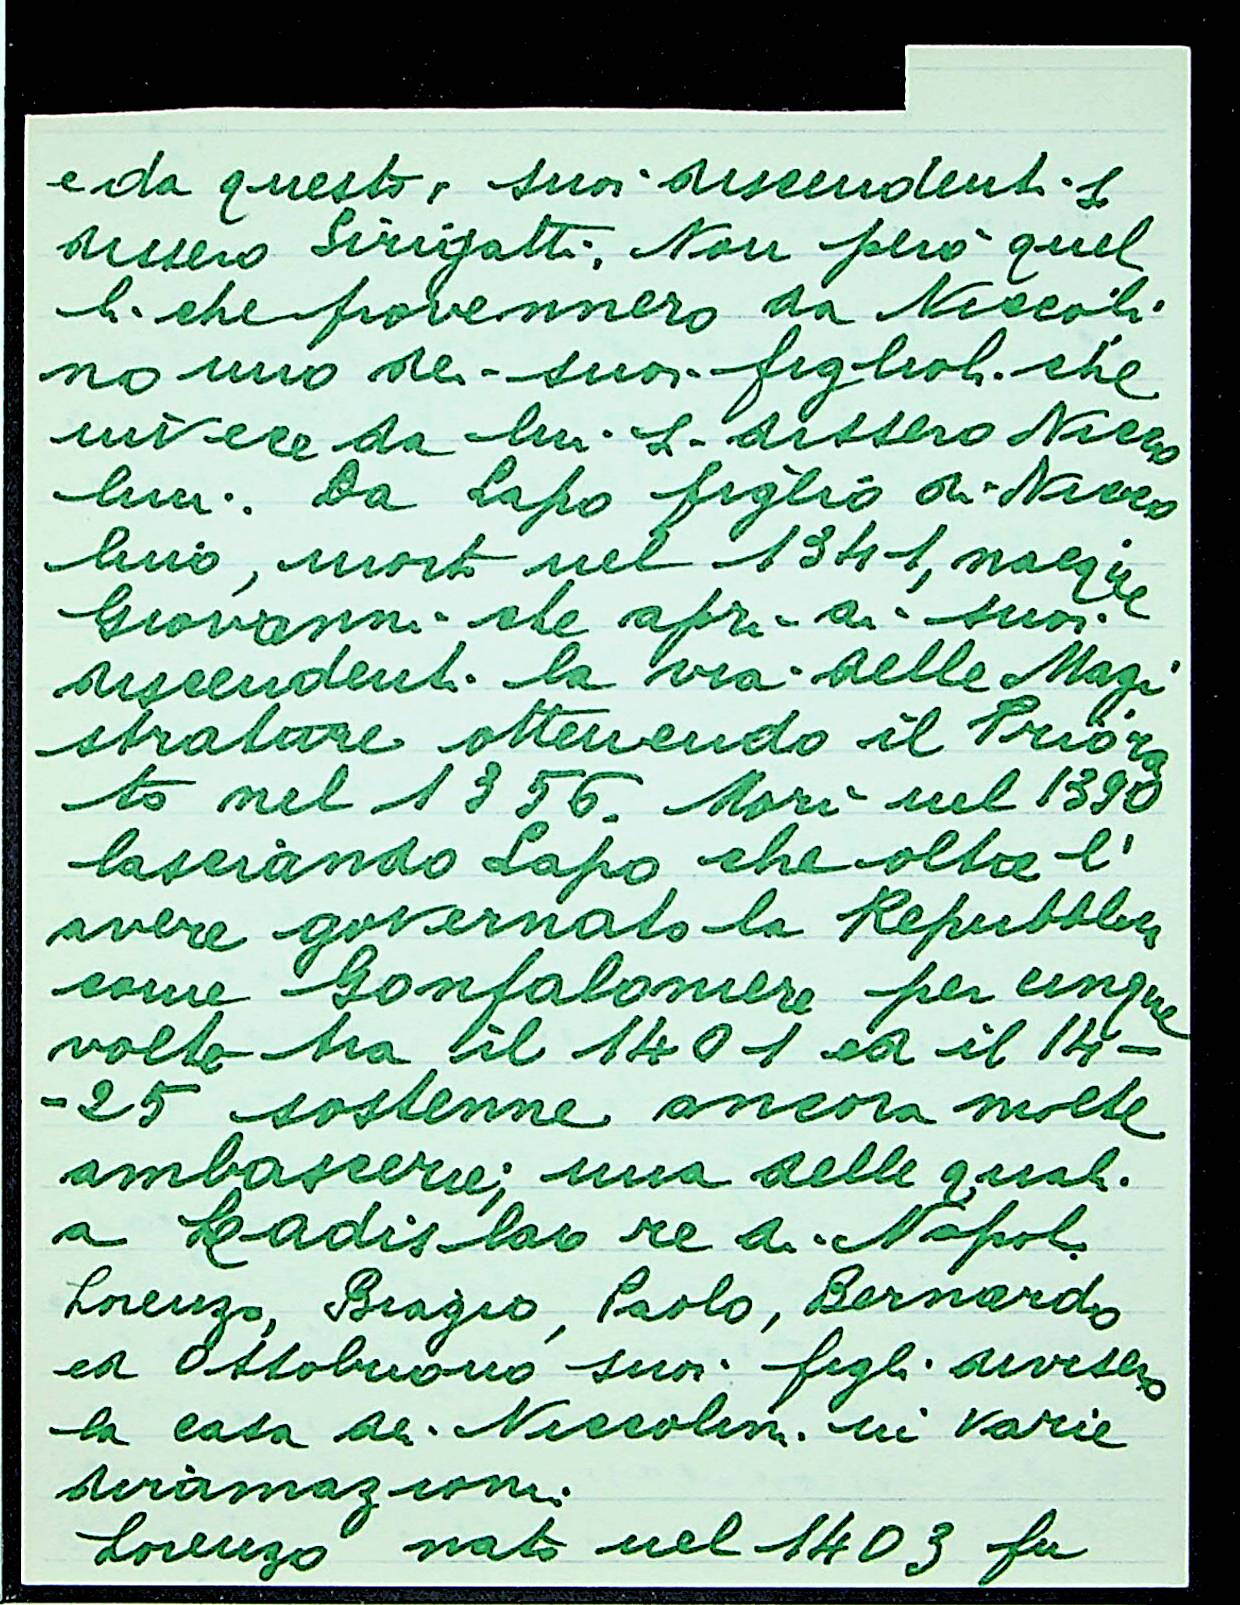 e da questo, suoi discendenti si
dissero Sirigatti. Non però quel
li che provennero da Niccoli
no uno dei suoi figlioli che
invece da lui si dissero Nicco
lini. Da Lapo figlio di Nicco
lino, morto nel 1341, nacque
Giovanni che aprì ai suoi
discendenti la via delle Magi
strature ottenendo il Priora
to nel 1356. Morì nel 1390
lasciando Lapo che oltre l'
avere governato la Repubblica
come Gonfaloniere per cinque
volte tra il 1401 ed il 14-
-25 sostenne ancora molte
ambascerie; una delle quali
a Ladislao re di Napoli.
Lorenzo, Biagio, Paolo, Bernardo
ed Ottobuono suoi figli divisero
la casa dei Niccolini in varie
diramazioni.
Lorenzo nato nel 1403 fu